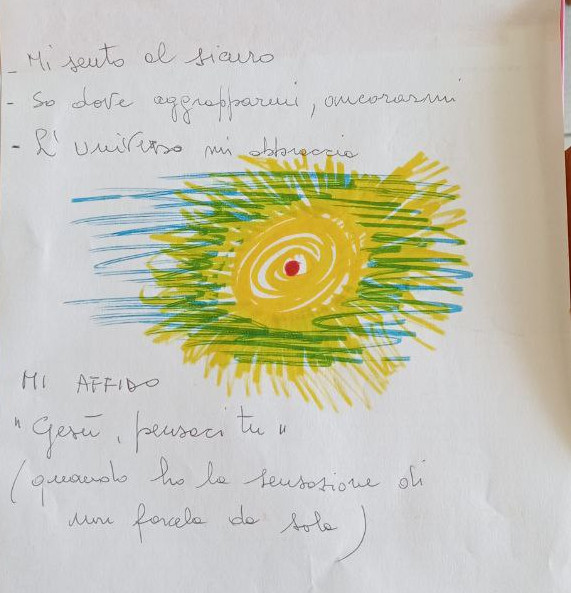 - Mi sento al sicuro
- So dove aggrapparmi, ancorarmi
- L'universo mi abbraccia
MI AFFIDO
"Gesù, pensaci tu"
(quando ho la sensazione di
non farcela da sola)